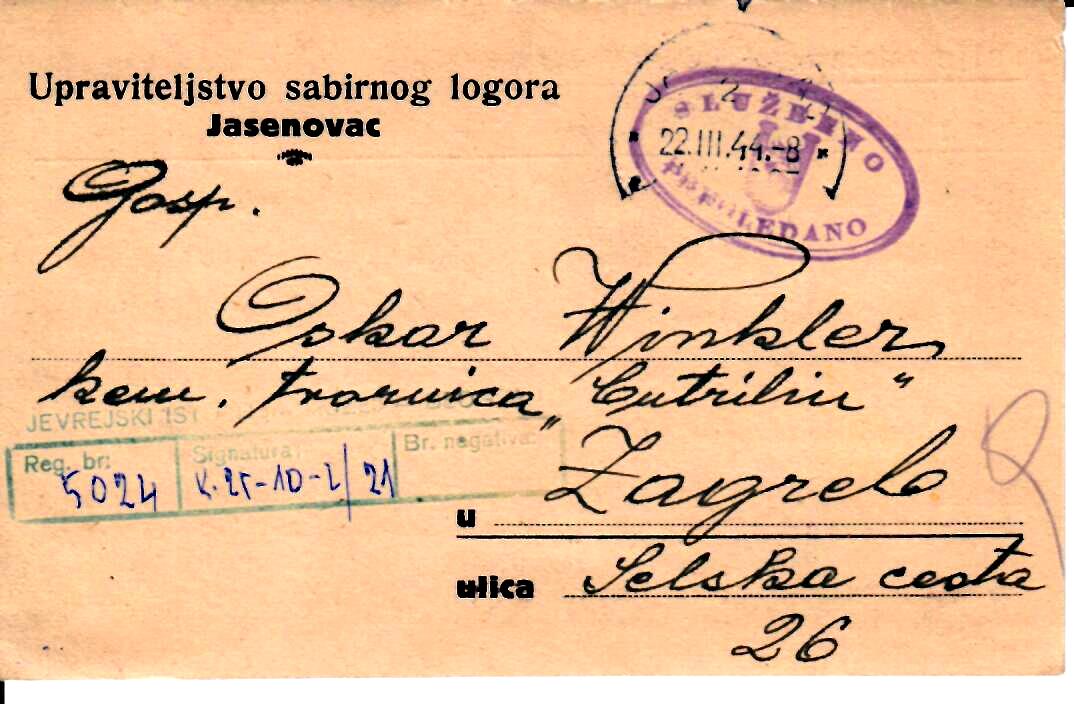 Upraviteljstvo sabirnog logora
Jasenovac
SLUŽBENO
22.III.44.-8
U
PREGLEDANO
Gosp.
Oskar Winkler
kem. tvornica „Cutrilin“
JEVREJSKI IST
Reg. br: 5024
Signatura: K.25-10-2/21
Br. negativa:
u Zagreb
ulica Selska cesta
26